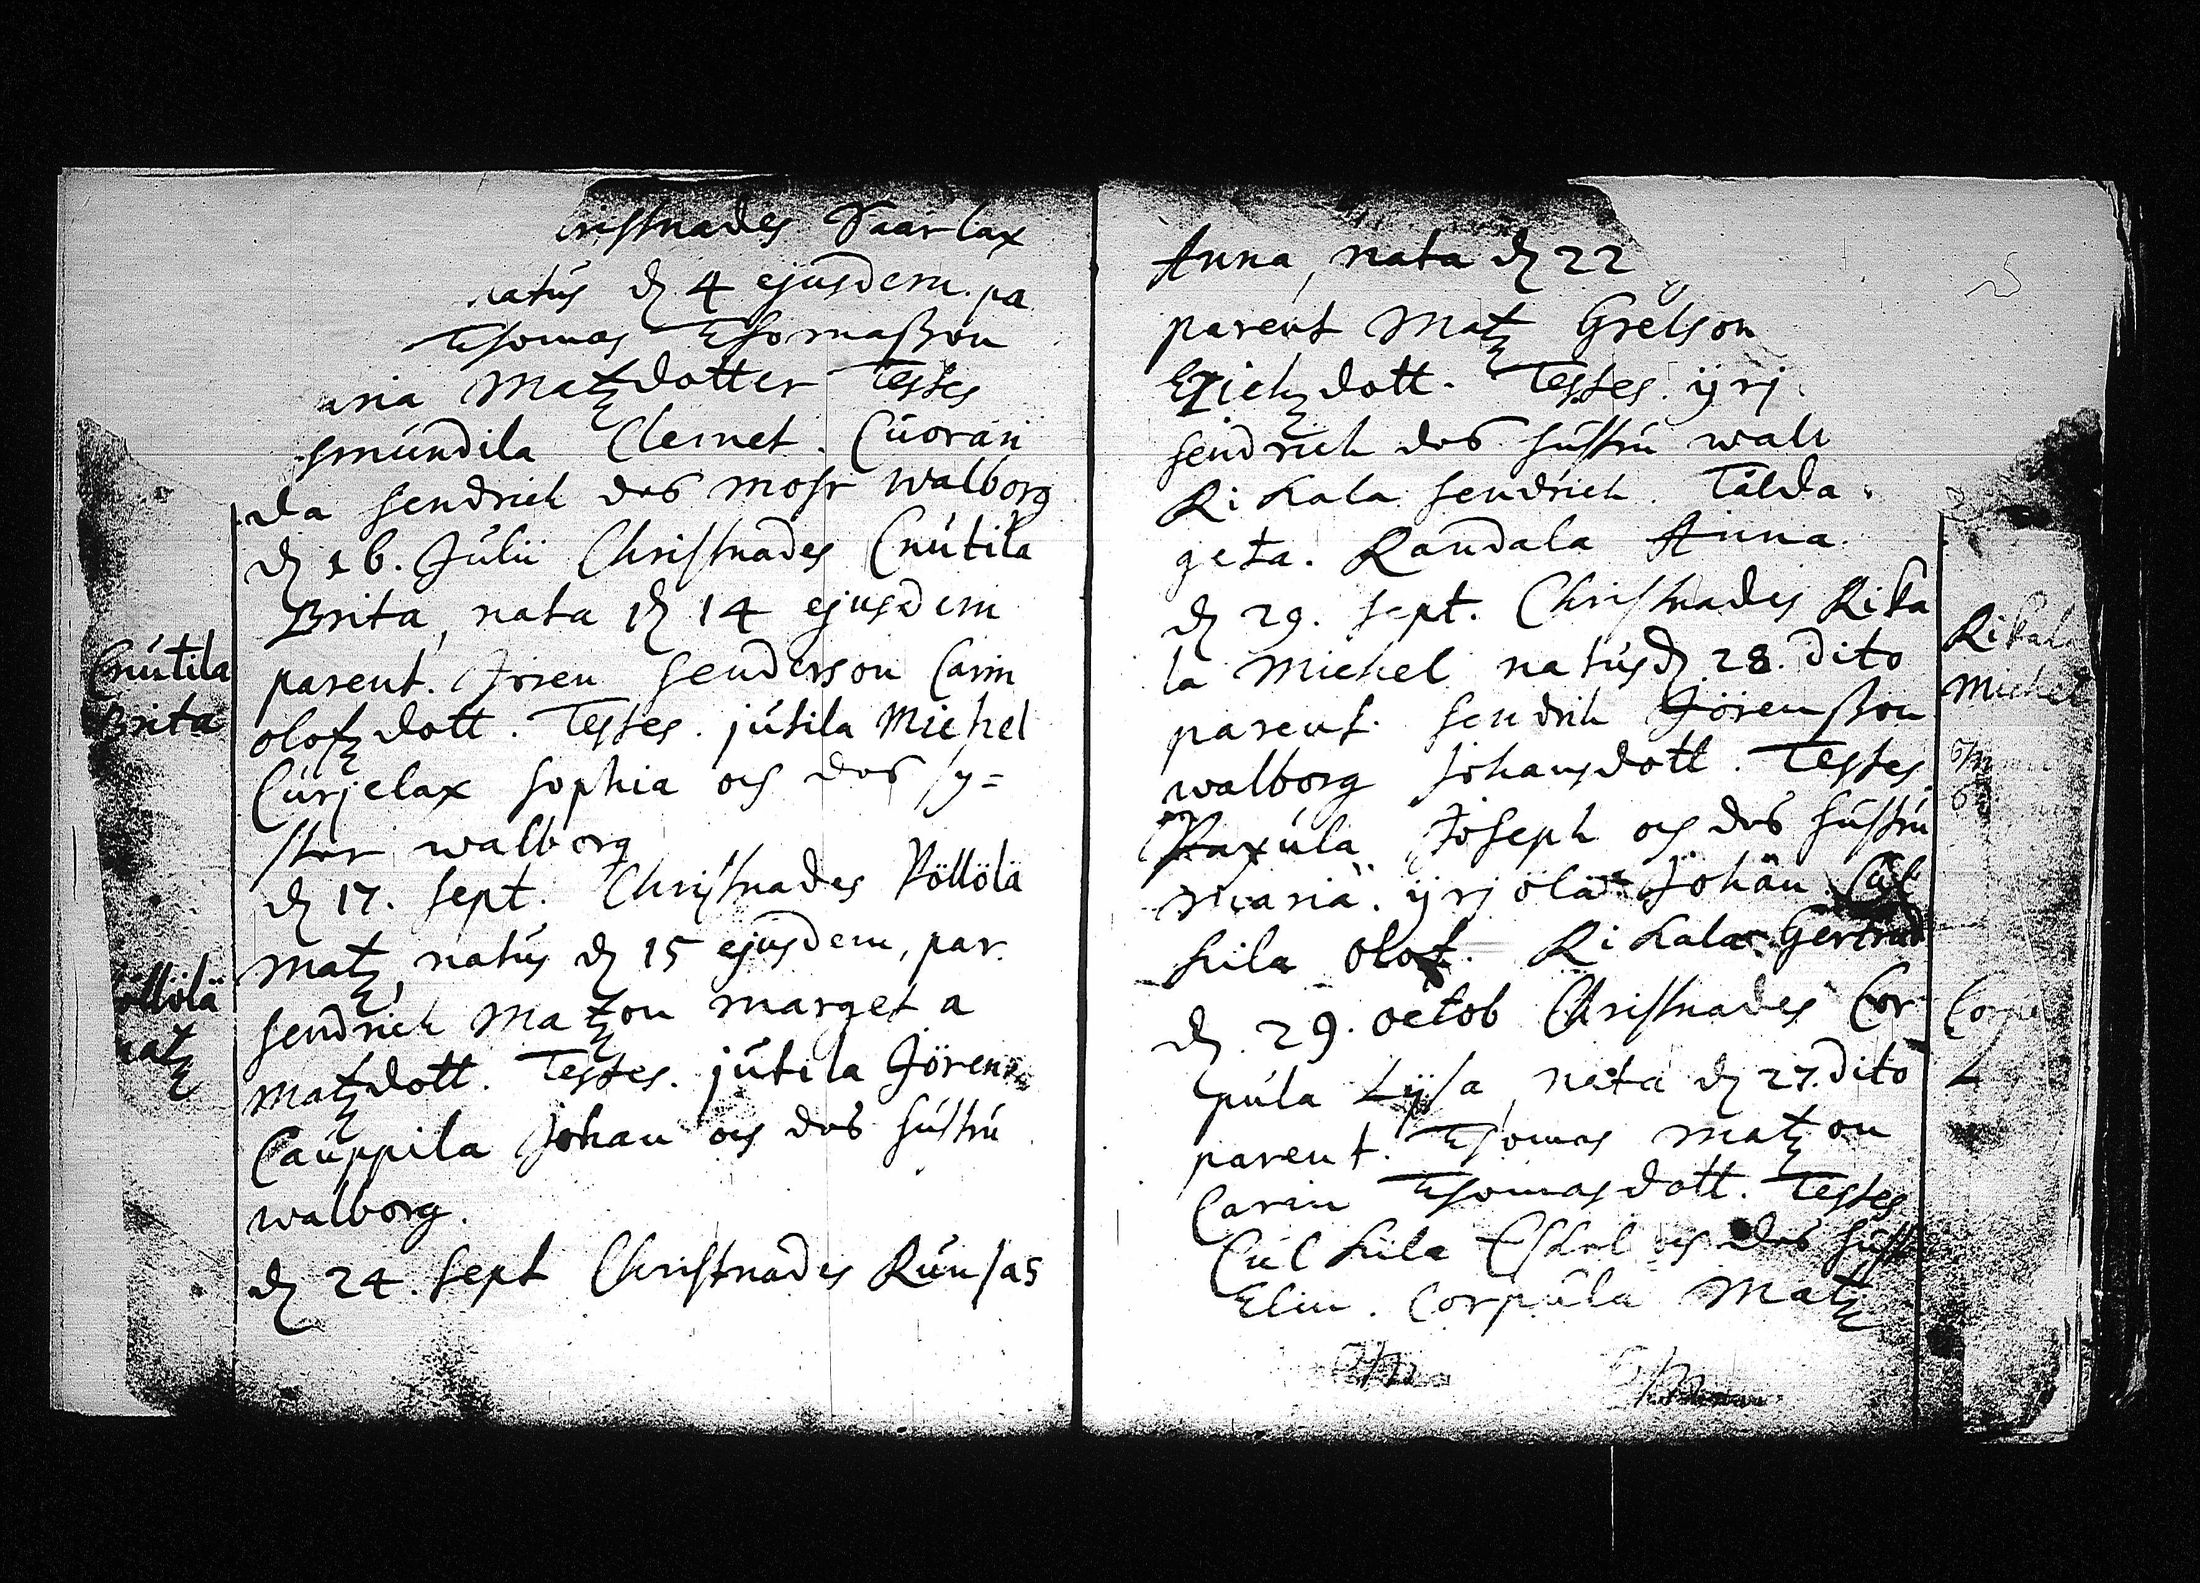 ristnades Saarlax
natus d 4 ejusdem. pa
Thomas Thomaßon
aria Matzdotter Testes
smundila Clemet. Cuoran
da Hendrich des mohr Walborg
d 16. Julii Christnades Cnutila
Brita, nata d 14 ejusdem
parent. Jören Henderson Carin
olofzdott. Testes. jutila Michel
Curjelax Sophia och des sy=
ster walborg
d 17. Sept. Christnades Pöllölä
Matz, natus d 15 ejusdem, par.
Hendrich Matzon margeta
Matzdott. Testes. jutila Jören
Cauppila Johan och des hustru
walborg.
d 24. Sept Christnades Runsas
Cnutila
Brita
öllölä
matz
Anna, nata d 22
parent Matz Grelson
Erichzdott. Testes. ÿrj
Hendrich des hustru walb
Rikala Hendrich. Talda
geta. Randala Anna.
d 29. Sept. Christnades Rika
la Michel natus d 28. dito
parent. Hendrich Jörenßon
walborg Johansdott. Testes
Joseph och des hustru
maria. ÿrjölä Johan Cul
kila Olof. Rikala Gertrud
d. 29. octob Christnades Cor
pula Lÿsa, nata d 27. dito
parent. Thomas Matzon
Carin Thomasdott. Testes
Culkila Eskel och des hust
Elin. Corpula Matz
5
Rikala
Michel
Corpu
L